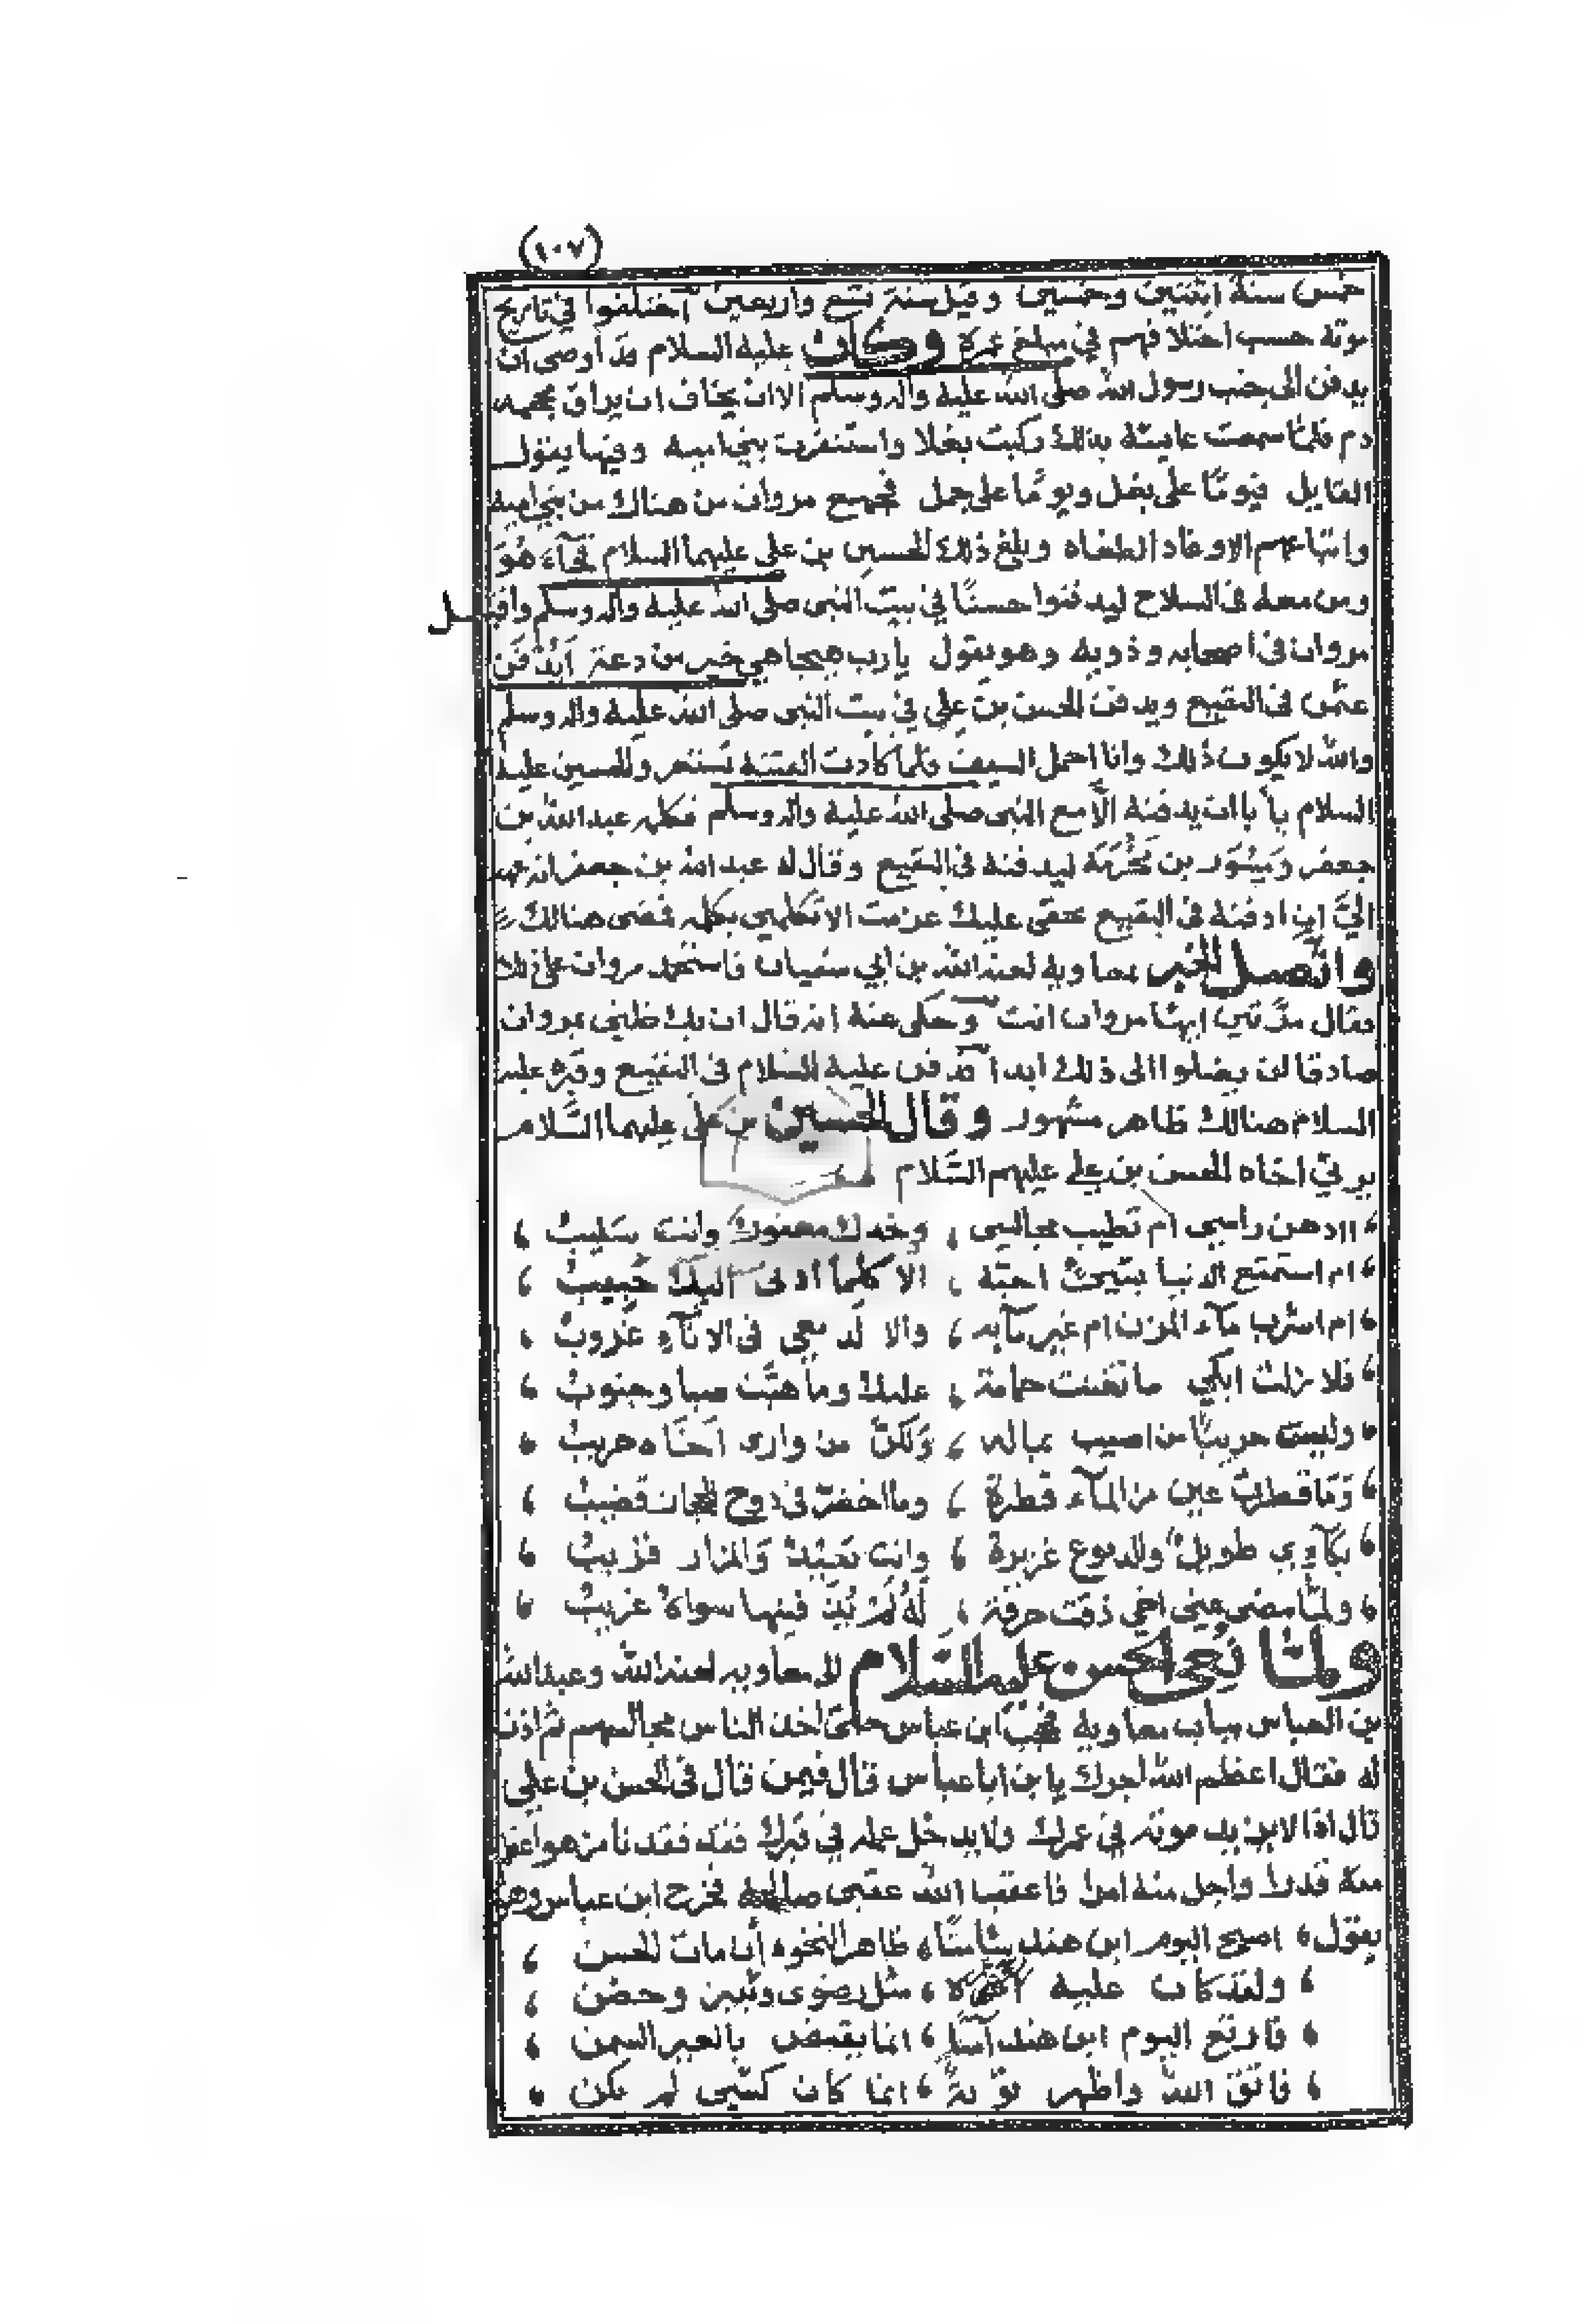 (١٠٧)
خمس سنة اثنتين وخمسين وقيل سنة تسع واربعين اختلفوا في تاريخ
موته حسب اختلافهم في مبلغ عمره وكان عليه السلام قد اوصى ان
يدفن الى جنب رسول الله صلى الله عليه واله وسلم الا ان يخاف ان يراق محجمه
دم فلما سمعت عايشة بذلك ركبت بغلا واستنفرت بني اميه وفيها يقول
القايل فيومًا على بغل ويومًا على جمل فجمع مروان من هناك من بني اميه
واتباعهم الاوغاد الطغاه وبلغ ذلك الحسين بن علي عليهما السلام فجآء هو
ومن معه في السلاح ليدفنوا حسنًا في بيت النبي صلى الله عليه واله وسلم واقبل
مروان في اصحابه وذويه وهو يقول يارب هيجا هي خير من دعة ايدفن
عثمن في البقيع ويدفن الحسن بن علي في بيت النبي صلى الله عليه واله وسلم
والله لا يكون ذلك وانا احمل السيف فلما كادت الفتنة تستحر والحسين عليه
السلام يأبا ان يدفنه الّا مع النبي صلى الله عليه واله وسلم فكلمه عبد الله بن
جعفر ومِسْوَر بن مَخْرَمَه ليدفنه في البقيع وقال له عبد الله بن جعفر انه عهد
اليَّ ان ادفنه في البقيع بحقي عليك عزمت الا تكلمني بكلمه فمضى هنالك
واتصل الخبر بمعاويه لعنه الله بن ابي سفيان فاستحمد مروان على ذلك
فقال مرّتين ايهًا مروان انت وحكى عنه انه قال ان يك ظني بمروان
صادقا لن يصلوا الى ذلك ابدا دفن عليه السلام في البقيع وقبره عليه
السلام هنالك ظاهر مشهور وقال الحسين بن علي عليهما السلام
يرثي اخاه الحسن بن علي عليهم السّلام
، اادهن راسي ام تطيب مجالسي ، وخدك معفورٌ وانت سَليبُ ،
، ام استمتع الدنيا بشيءٍ احبّه ، الا كلما ادنى اليك حبيبُ ،
، ام اشرب مآء المزن ام غير مآيه ، والا لدمعي في الانآءِ غروبُ ،
، فلا زلت ابكي ما تغنت حمامة ، عليك وما هبّت صبا وجنوبُ ،
، وليس حريبًا من اصيب بماله ، ولكنّ من وارى اخَاه حريبُ ،
، وَمَا قطرت عين من المآء قطرة ، وما اخضرّ في دوح الحجاز قضيبُ ،
، بكآوي طويلٌ والدموع غزيرة ، وانت بَعيْدٌ والمزار قريبُ ،
، ولمّا مضى عني اخي ذقت حرقة ، لهُ لمْ يَذُقْ فيها سواهُ غريبُ ،
ولما نُعي الحسن عليه السّلام الى معاويه لعنه الله وعبد الله
بن العباس بباب معاويه فحجب ابن عباس حتى اخذ الناس مجالسهم ثم اذن
له فقال اعظم الله اجرك يا بن ابا عباس قال فيمن قال في الحسن بن علي
قال اذا لا يزيد موته في عمرك ولا يدخل عمله في قبرك فقد فقدنا من هو اعظم
منه قدرا واجل منه امرا فاعقب الله عقبى صالحه فخرج ابن عباس وهو
يقول ، اصبح اليوم ابن هند شامتًا ، ظاهر النخوه أنا مات الحسن ،
، ولقد كان عليه ، مثل رضوى وثبير وحضن ،
، فارتع اليوم ابن هند آمنًا ، انما يقمص بالعير السمن ،
، فاتق الله واظهر توبةً ، انما كان كشيي لم يكن ،